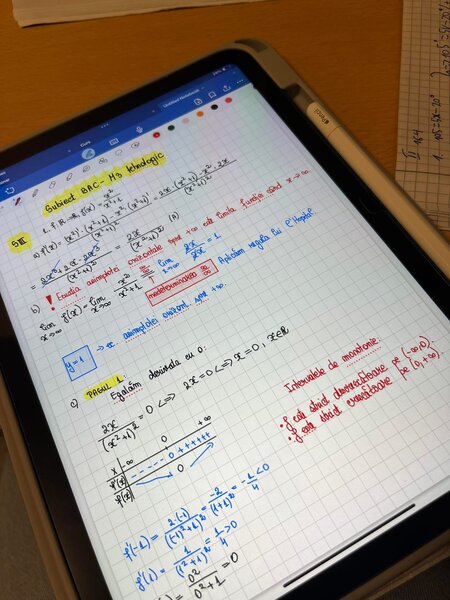 Curs
Untitled Notebook
Subiect BAC - M3 tehnologic
SIII
1. f: R→R, f(x) = x²/(x²+1)
a) f'(x) = ((x²)'·(x²+1) - x²·(x²+1)')/(x²+1)² = (2x·(x²+1) - x²·2x)/(x²+1)²
= (2x³+2x-2x³)/(x²+1)² = 2x/(x²+1)² (A)
b) ! Ecuația asimptotei orizontale spre +∞ este limita funcției când x→∞
lim x→∞ f(x) = lim x→∞ x²/(x²+1) = lim x→∞ 2x/2x = 1
nedeterminarea ∞/∞ Aplicăm regula lui l'Hopital
y=1 → ec. asimptotei orizont. spre +∞.
c) PASUL 1:
Egalăm derivata cu 0:
2x/(x²+1)² = 0 <=> 2x=0 <=> x=0, x∈R
x -∞ 0 +∞
f'(x) - - - - 0 + + + + + +
f(x) 0
Intervalele de monotonie:
· f este strict descrescătoare pe (-∞,0)
· f este strict crescătoare pe [0,+∞).
f'(-1) = 2·(-1)/((-1)²+1)² = -2/(1+1)² = -1/4 < 0
f'(1) = 1/(1²+1)² = 1/4 > 0
0²/(0²+1) = 0
Pencil
II 164